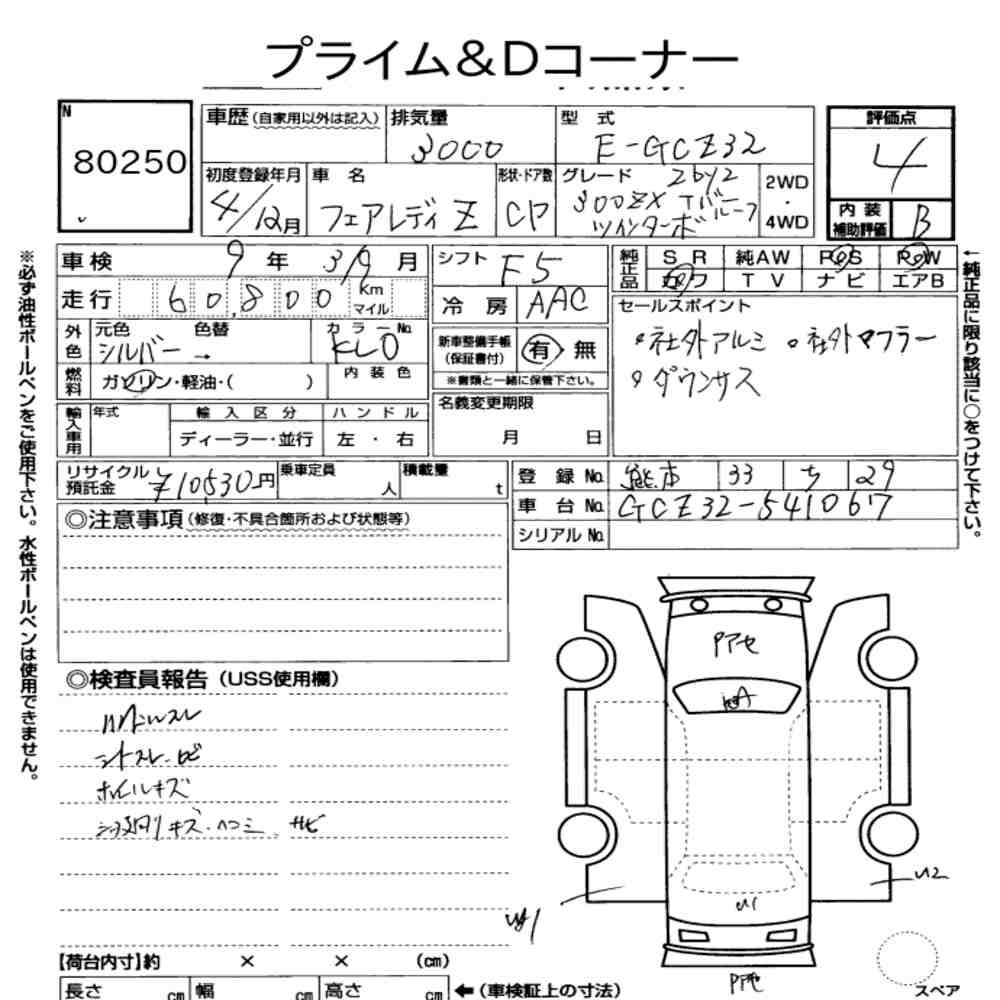 プライム&Dコーナー
N
80250
車歴 (自家用以外は記入) 排気量 型 式
3000 E-GCZ32
評価点
4
内 装
補助評価 B
初度登録年月 車 名 形状・ドア数 グレード 2by2
4/12月 フェアレディ Z CP 300ZX Tバールーフ
ツインターボ
2WD
・
4WD
車検 9 年 3/9 月
シフト F5
純正品 SR 純AW PS PW
パワ TV ナビ エアB
走行 60,800 Km マイル
冷房 AAC
セールスポイント
・社外アルミ ・社外マフラー
・ダウンサス
外色 元色 色替 カラーNo.
シルバー → KL0
新車整備手帳
(保証書付) 有 無
※書類と一緒に保管下さい。
燃料 ガソリン・軽油・( ) 内装色
名義変更期限
月 日
輸入車用 年式 輸入区分 ハンドル
ディーラー・並行 左・右
リサイクル
預託金 ¥10530円 乗車定員 人 積載量 t
登録No. 熊本 33 ち 29
車台No. GCZ32-541067
シリアルNo.
◎注意事項 (修復・不具合箇所および状態等)
◎検査員報告 (USS使用欄)
シートスレ
ホイルキズ
キズ・ヘコミ サビ
Pアセ
A
U1
U2
Pアセ
スペア
【荷台内寸】約 × × (cm)
長さ cm 幅 cm 高さ cm ←(車検証上の寸法)
※必ず油性ボールペンをご使用下さい。水性ボールペンは使用できません。
←純正品に限り該当に○をつけて下さい。